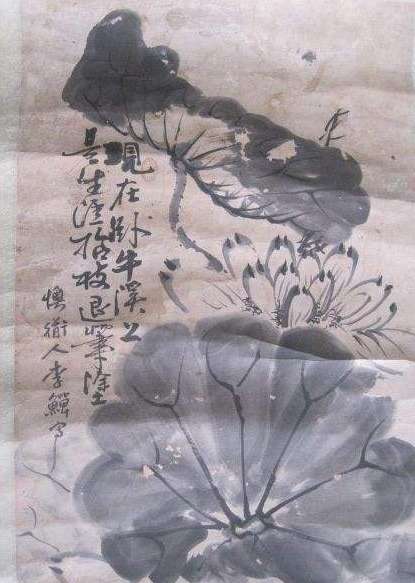 現在卧牛溪上
是生涯拈枝退筆塗
懊衟人李鱓写